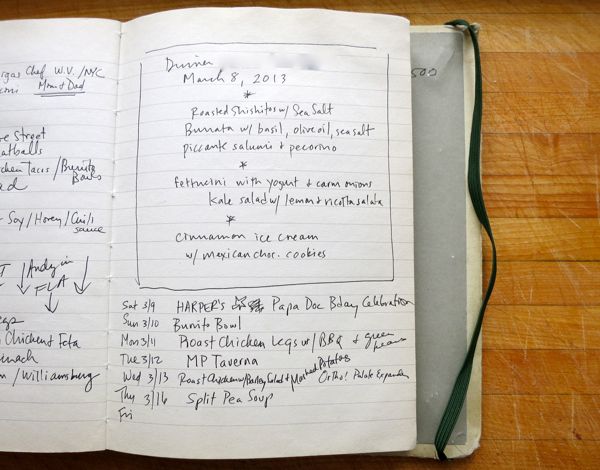 Chef W.V. / NYC
Mom + Dad
Street
Tacos / Burrito Bowls
Soy / Honey / Chili sauce
Andy in FLA
Chicken + Feta
/ Williamsburg
Dinner
March 8, 2013
*
Roasted Shishitos w/ Sea Salt
Burrata w/ basil, olive oil, sea salt
piccante salumi + pecorino
*
fettucini with yogurt + carm onions
kale salad w/ lemon + ricotta salata
*
cinnamon ice cream
w/ mexican choc. cookies
500
Sat 3/9 HARPER'S Papa Doc Bday Celebration
Sun 3/10 Burrito Bowl
Mon 3/11 Roast Chicken Legs w/ BBQ + green beans
Tue 3/12 MP Taverna
Wed 3/13 Roast Chicken w/ Barley Salad + Mashed Potatoes Ortho! Palate Expander
Thy 3/14 Split Pea Soup
Fri